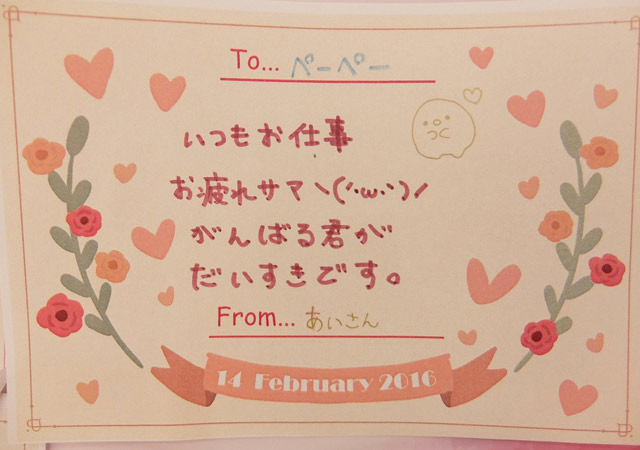 To... ペーペー
いつもお仕事
お疲れサマヽ(´･ω･`)ノ
がんばる君が
だいすきです。
From... あいさん
14 February 2016